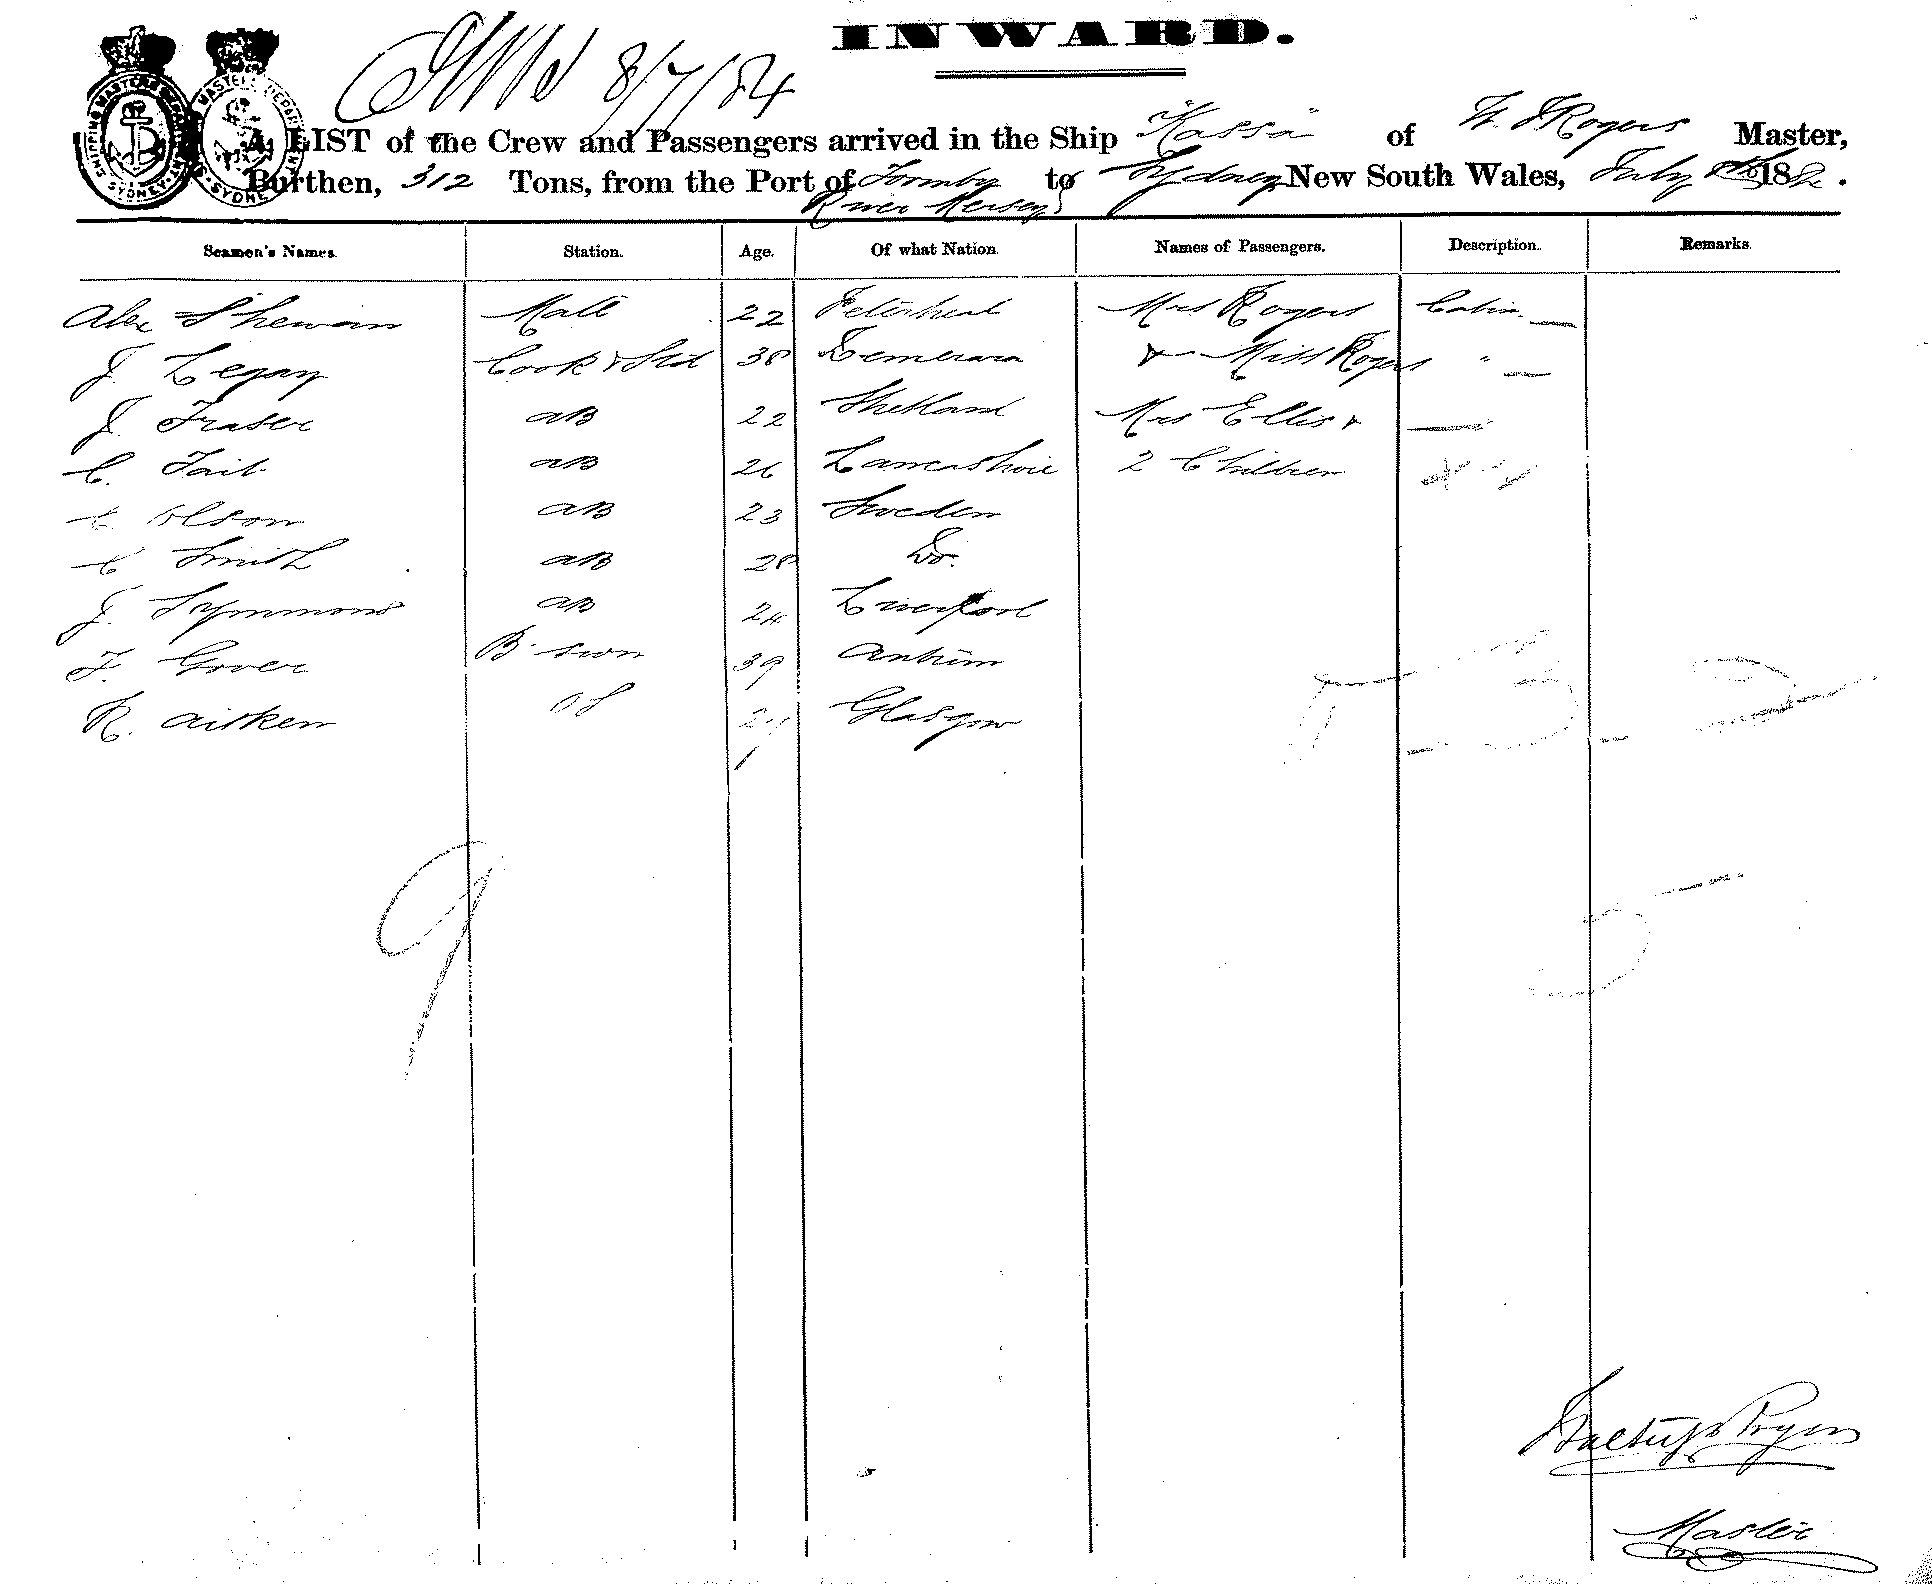 INWARD.
8/7/84
A LIST of the Crew and Passengers arrived in the Ship "Kassa" of W. J Rogers Master,
Burthen, 312 Tons, from the Port of Formby River Mersey to Sydney New South Wales, July 8th 188.
Seamen's Names. Station. Age. Of what Nation. Names of Passengers. Description. Remarks.
Alex Shewan Mate 22 Peterhead Mrs Rogers Cabin —
J. Legay Cook & Std 38 Demerara & Miss Rogers " —
J. Fraser AB 22 Shetland Mrs Ellis & —
C. Tait AB 26 Lancashire 2 Children
C Olson AB 23 Sweden
C Smith AB 28 Do.
J. Symmons AB 24 Liverpool
F. Gover B'swn 39 Antrim
R. Aitken OS Glasgow
9
Master